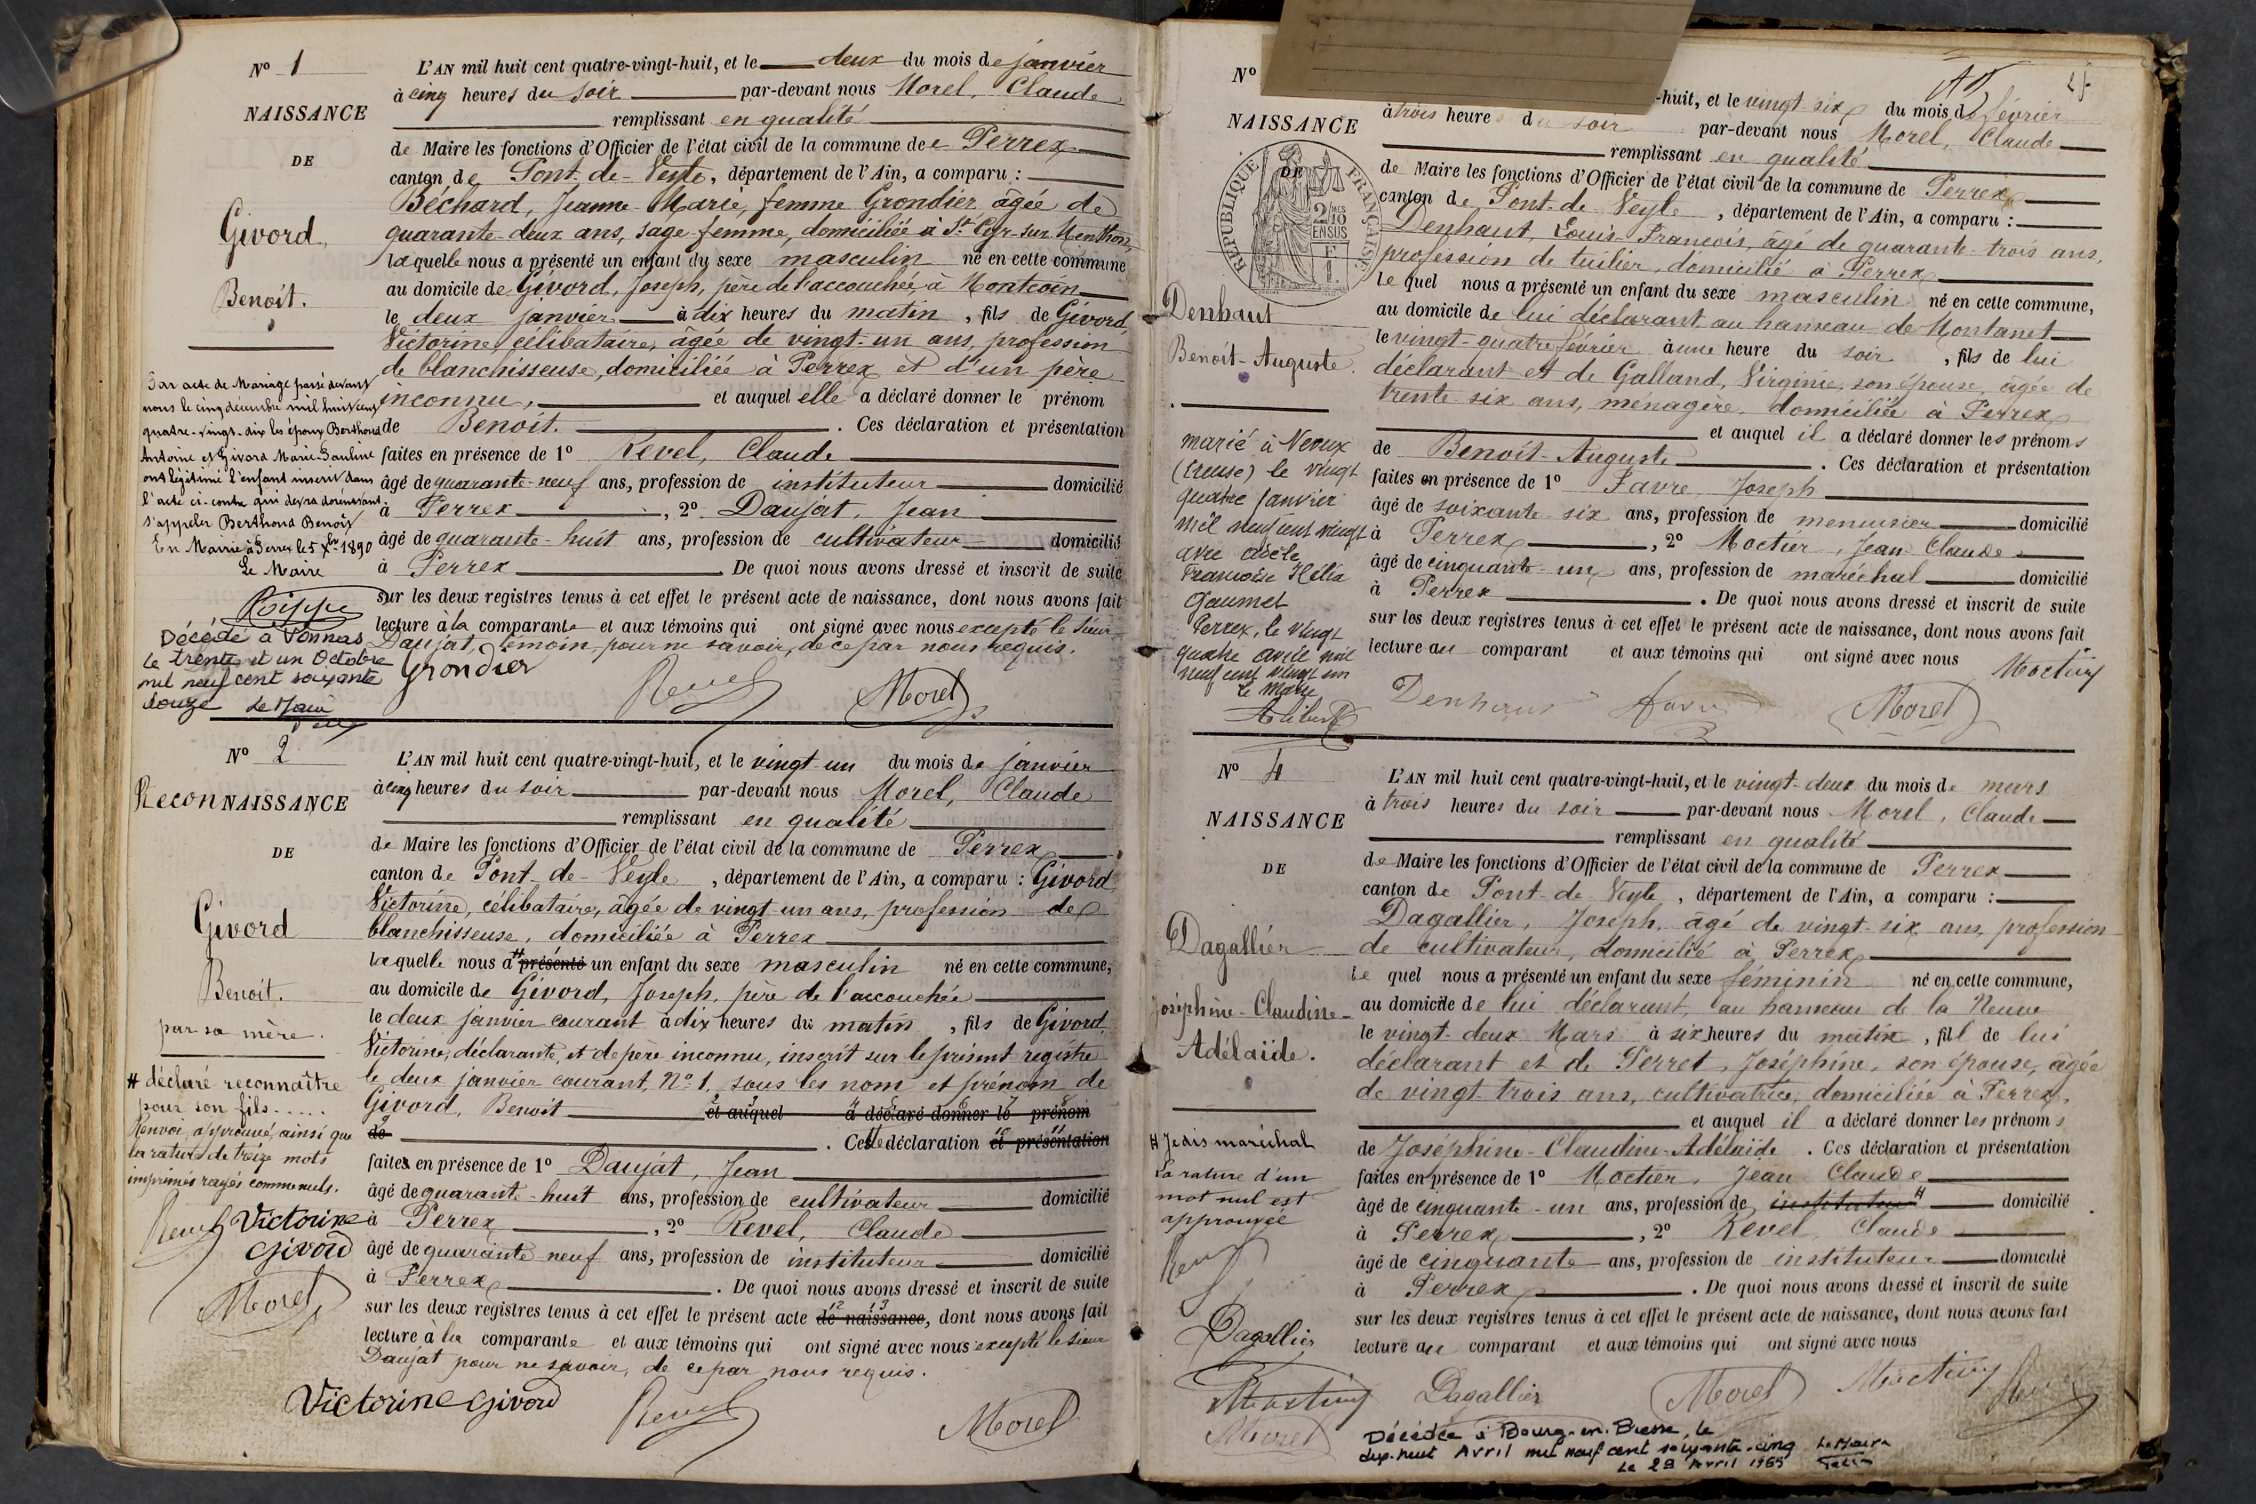 N° 1
NAISSANCE
DE
Givord,
Benoit.
Par acte de Mariage passé devant
nous le cinq décembre mil huit cent
quatre-vingt-dix les époux Berthoud
Antoine et Givord Marie Pauline
ont légitimé l'enfant inscrit dans
l'acte ci-contre qui devra dorénavant
s'appeler Berthoud Benoit
En Mairie à Perrex le 5 Xbre 1890
Le Maire
Rippe
Décédé à Vonnas
le trente et un Octobre
mil neuf cent soixante
douze Le Maire
L'AN mil huit cent quatre-vingt-huit, et le deux du mois de janvier
à cinq heures du soir par-devant nous Morel, Claude
remplissant en qualité
de Maire les fonctions d'Officier de l'état civil de la commune de Perrex
canton de Pont-de-Veyle, département de l'Ain, a comparu :
Béchard, Jeanne-Marie, femme Grondier âgée de
quarante-deux ans, sage-femme, domiciliée à St Cyr-sur-Menthon
laquelle nous a présenté un enfant du sexe masculin né en cette commune
au domicile de Givord, Joseph, père de l'accouchée, à Montcoin
le deux janvier à dix heures du matin, fils de Givord,
Victorine, célibataire, âgée de vingt-un ans, profession
de blanchisseuse, domiciliée à Perrex et d'un père
inconnu, et auquel elle a déclaré donner le prénom
de Benoit. . Ces déclaration et présentation
faites en présence de 1° Revel, Claude
âgé de quarante-neuf ans, profession de instituteur domicilié
à Perrex , 2° Daujat, Jean
âgé de quarante-huit ans, profession de cultivateur domicilié
à Perrex De quoi nous avons dressé et inscrit de suite
sur les deux registres tenus à cet effet le présent acte de naissance, dont nous avons fait
lecture à la comparante et aux témoins qui ont signé avec nous excepté le sieur
Daujat, témoin, pour ne savoir, de ce par nous requis.
Grondier Revel Morel
N° 2
ReconNAISSANCE
DE
Givord
Benoit.
par sa mère.
# déclaré reconnaître
pour son fils.....
Renvoi approuvé, ainsi que
la rature de treize mots
imprimés rayés comme nuls.
Revel Victorine
Givord
Morel
L'AN mil huit cent quatre-vingt-huit, et le vingt-un du mois de janvier
à cinq heures du soir par-devant nous Morel, Claude
remplissant en qualité
de Maire les fonctions d'Officier de l'état civil de la commune de Perrex
canton de Pont-de-Veyle, département de l'Ain, a comparu : Givord
Victorine, célibataire, âgée de vingt-un ans, profession de
blanchisseuse, domiciliée à Perrex
laquelle nous a # présenté un enfant du sexe masculin né en cette commune,
au domicile de Givord, Joseph, père de l'accouchée
le deux janvier courant à dix heures du matin, fils de Givord,
Victorine, déclarante, et de père inconnu, inscrit sur le présent registre
le deux janvier courant, N° 1, sous les nom et prénom de
Givord, Benoit et auquel a déclaré donner le prénom
de . Cette déclaration et présentation
faites en présence de 1° Daujat, Jean
âgé de quarante-huit ans, profession de cultivateur domicilié
à Perrex , 2° Revel, Claude
âgé de quarante neuf ans, profession de instituteur domicilié
à Perrex . De quoi nous avons dressé et inscrit de suite
sur les deux registres tenus à cet effet le présent acte de naissance, dont nous avons fait
lecture à la comparante et aux témoins qui ont signé avec nous excepté le sieur
Daujat pour ne savoir, de ce par nous requis.
Victorine Givord Revel Morel
N°
NAISSANCE
DE
RÉPUBLIQUE FRANÇAISE
2/10 EN SUS
Denhaut
Benoit-Auguste.
marié à Néoux
(Creuse) le vingt
quatre janvier
mil neuf cent vingt
avec
Françoise Hélia
Gaumet
Perrex, le vingt
quatre avril mil
neuf cent vingt un
Le Maire
-huit, et le vingt-six du mois de février
à trois heures du soir par-devant nous Morel, Claude
remplissant en qualité
de Maire les fonctions d'Officier de l'état civil de la commune de Perrex
canton de Pont-de-Veyle, département de l'Ain, a comparu :
Denhaut, Louis-François, âgé de quarante-trois ans,
profession de tuilier, domicilié à Perrex
lequel nous a présenté un enfant du sexe masculin né en cette commune,
au domicile de lui déclarant, au hameau de Montanet
le vingt-quatre février à une heure du soir, fils de lui
déclarant et de Galland, Virginie, son épouse, âgée de
trente-six ans, ménagère, domiciliée à Perrex
et auquel il a déclaré donner les prénoms
de Benoit-Auguste . Ces déclaration et présentation
faites en présence de 1° Favre, Joseph
âgé de soixante-six ans, profession de menuisier domicilié
à Perrex , 2° Moctier, Jean Claude
âgé de cinquante-un ans, profession de maréchal domicilié
à Perrex . De quoi nous avons dressé et inscrit de suite
sur les deux registres tenus à cet effet le présent acte de naissance, dont nous avons fait
lecture au comparant et aux témoins qui ont signé avec nous
Moctier
Denhaut Favre Morel
N° 4
NAISSANCE
DE
Dagallier
Joséphine-Claudine-
Adélaïde.
# Je dis maréchal
La rature d'un
mot nul est
approuvée
Revel
Dagallier
Moctier
Morel
L'AN mil huit cent quatre-vingt-huit, et le vingt-deux du mois de mars
à trois heures du soir par-devant nous Morel, Claude
remplissant en qualité
de Maire les fonctions d'Officier de l'état civil de la commune de Perrex
canton de Pont-de-Veyle, département de l'Ain, a comparu :
Dagallier, Joseph, âgé de vingt-six ans, profession
de cultivateur, domicilié à Perrex
lequel nous a présenté un enfant du sexe féminin né en cette commune,
au domicile de lui déclarant, au hameau de la Neuve
le vingt-deux Mars à six heures du matin, fil de lui
déclarant et de Perret, Joséphine, son épouse, âgée
de vingt-trois ans, cultivatrice, domiciliée à Perrex,
et auquel il a déclaré donner les prénoms
de Joséphine-Claudine-Adélaïde. Ces déclaration et présentation
faites en présence de 1° Moctier, Jean Claude
âgé de cinquante-un ans, profession de instituteur # domicilié
à Perrex , 2° Revel, Claude
âgé de cinquante ans, profession de instituteur domicilié
à Perrex . De quoi nous avons dressé et inscrit de suite
sur les deux registres tenus à cet effet le présent acte de naissance, dont nous avons fait
lecture au comparant et aux témoins qui ont signé avec nous
Dagallier Morel Moctier Revel
Décédée à Bourg-en-Bresse, le
dix-huit Avril mil neuf cent soixante-cinq Le Maire
Le 29 Avril 1965